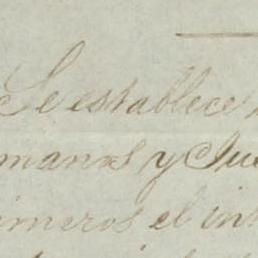 Se establece
manos y Jue
imeros el int